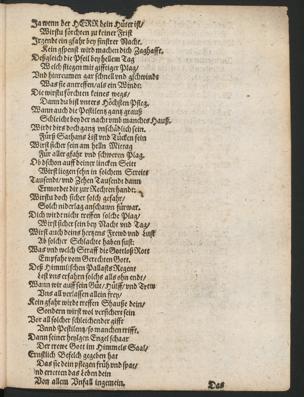 Ja wenn der HERR dein Hüter ist/
Wirstu förchten zu keiner Frist
Irgende ein gfahr bey finstrer Nacht.
Kein gspenst wird machen dich Zaghafft.
Deßgleich die Pfeil bey hellem Tag
Welch fliegen mit giffiger Plag/
Vnd hierumen gar schnell vnd gschwinds
Was sie antreffen/als ein Windt:
Die wirstu förchten keines wegs/
Dann du bist vnters Höchsten Pfleg.
Wann auch die Pestilentz gantz grauß
Schleicht bey der nacht vmb manches Hauß.
Wirdt dirs doch gantz vnschädlich sein.
Fürs Sathans List vnd Tücken sein
Wirst sicher sein am helln Mittag
Für aller gfahr vnd schweren Plag.
Ob dschon auff deiner lincken Seitt
Wirst liegen sehn in solchem Streitt
Tausendt/ vnd Zehen Tausendt dann
Ermordet dir zur Rechten handt:
Wirstu doch sicher solch gefahr/
Solch niderlag anschawen fürwar.
Dich wirdt nicht treffen solche Plag/
Wirst sicher sein bey Nacht vnd Tag/
Wirst auch deins hertzens Frewd vnd Lust
Ab solcher Schlachte haben sust:
Was vnd welch Straff die Gottloß Rott
Empfahe vom Gerechten Gott.
Deß Himmlischen Pallasts Regent
Lest vns erfahrn solchs alls ohn endt/
Wann wir auff sein Güt/ Hülff/ vnd Trew
Vns all verlassen allein frey/
Kein gfahr wirdt treffen Shauße dein/
Sondern wirst wol versichert sein
Vor all solcher schleichender gifft
Vnnd Pestilentz/so manchen trifft.
Dann seiner heylgen Engel schaar
Der trewe Gott im Himmels Saal/
Ernstlich Befelch gegeben hat
Das sie dein pflegen früh vnd spat/
Vnd erretten das Leben dein
Von allem Vnfall ingemein.
Das